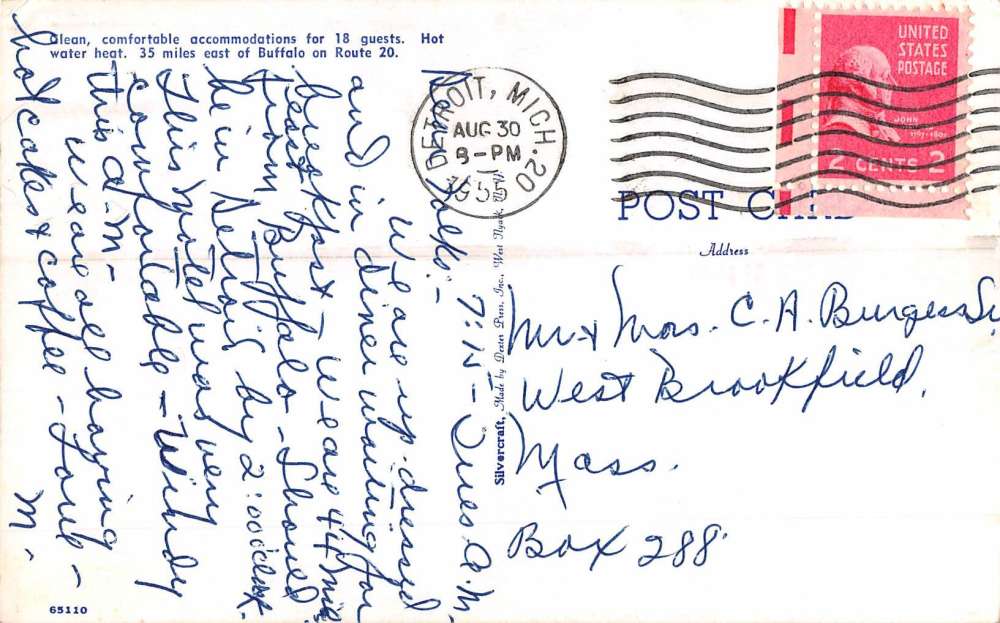 Clean, comfortable accommodations for 18 guests. Hot
water heat. 35 miles east of Buffalo on Route 20.
Hello:-
7:15 - Tues a.m.
We are up-dressed
and in diner waiting for
brekfast - We are 44 miles
from Buffalo - Should
be in Detroit by 2:00 oclock.
This motel was very
comfortable - Windy
this a-m-
We are all having
hot cakes & coffee - Love -
M.
65110
Silvercraft, Made by Dexter Press, Inc., West Nyack, N.Y.
DETROIT, MICH. 20
AUG 30
9-PM
1955
UNITED
STATES
POSTAGE
JOHN
2 CENTS 2
POST CARD
Address
Mr & Mrs. C. A. Burgess Sr
West Brookfield,
Mass.
Box 288